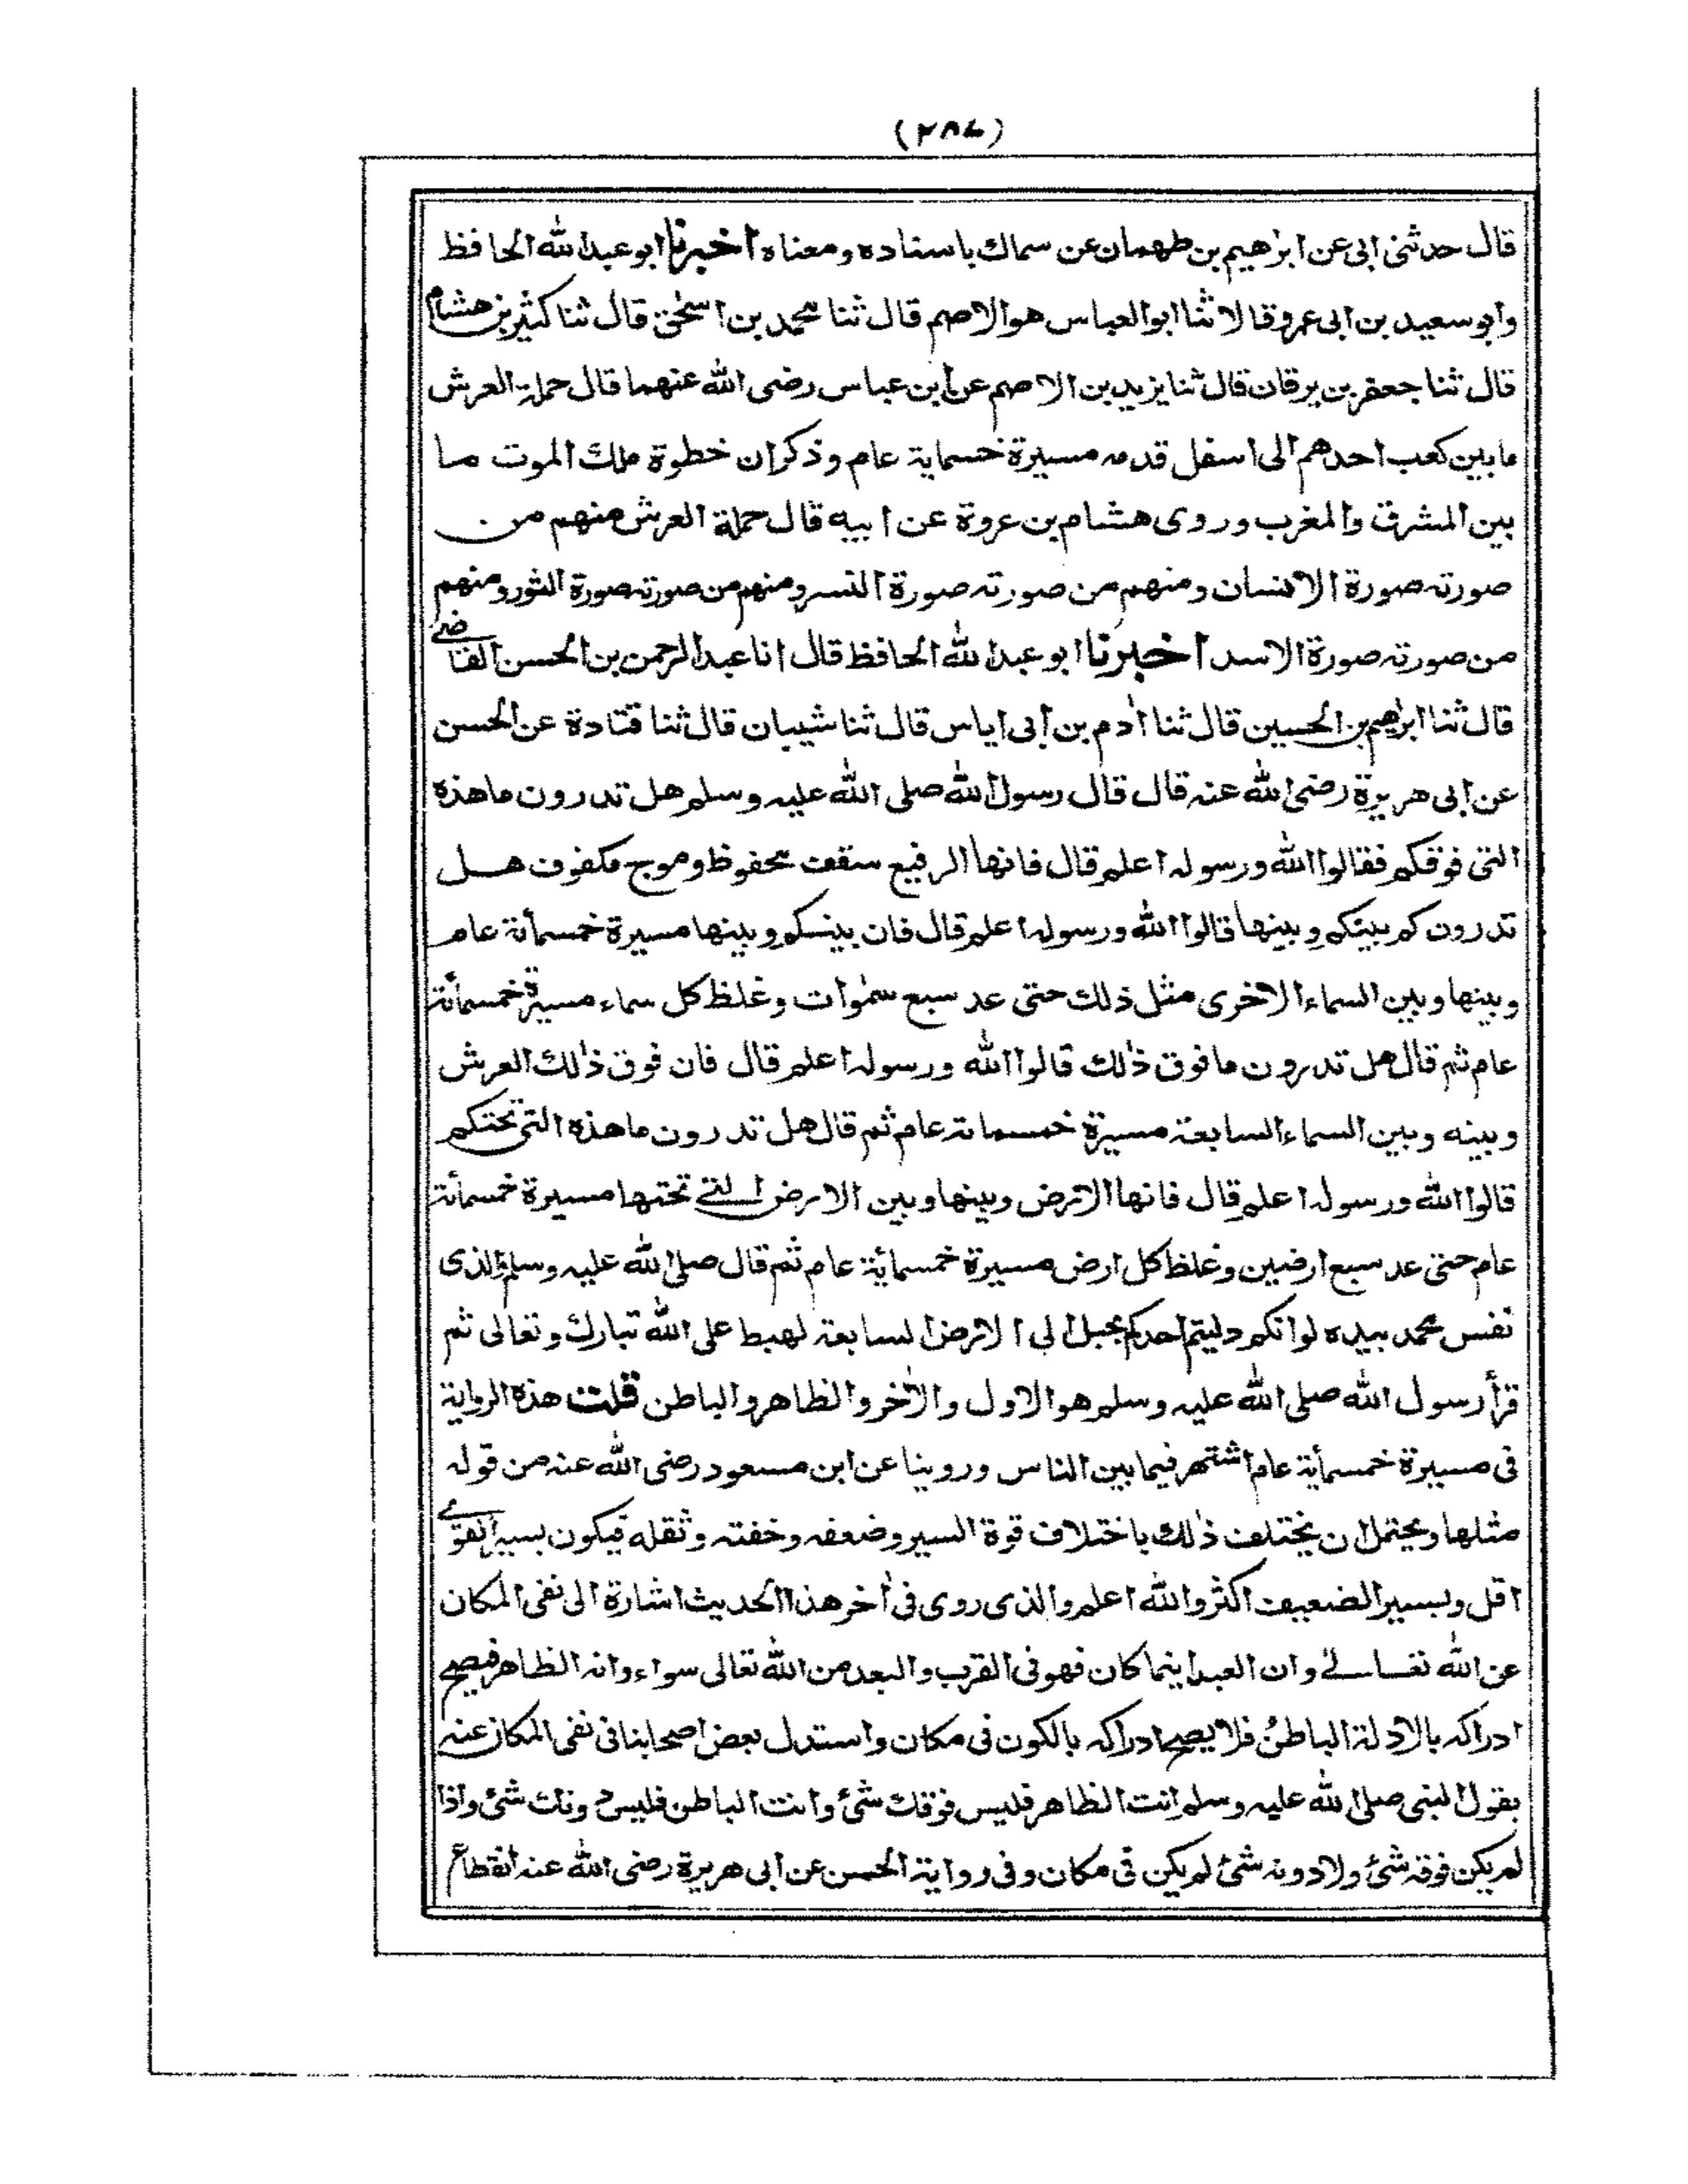 (٢٨٧)
قال حدثنى ابى عن ابرٰهيم بن طهمان عن سماك باسناده ومعناه اخبرنا ابو عبد الله الحافظ
وابو سعيد بن ابى عمرو قالا ثنا ابو العباس هو الاصم قال ثنا محمد بن اسحٰق قال ثنا كثير بن هشام
قال ثنا جعفر بن برقان قال ثنا يزيد بن الاصم عن ابن عباس رضى الله عنهما قال حملة العرش
ما بين كعب احدهم الى اسفل قدمه مسيرة خمسماية عام وذكر ان خطوة ملك الموت ما
بين المشرق والمغرب وروى هشام بن عروة عن ابيه قال حملة العرش منهم من
صورته صورة الانسان ومنهم من صورته صورة النسر ومنهم من صورته صورة الثور ومنهم
من صورته صورة الاسد اخبرنا ابو عبد الله الحافظ قال انا عبد الرحمن بن الحسن القاضى
قال ثنا ابرٰهيم بن الحسين قال ثنا اٰدم بن أبى اياس قال ثنا شيبان قال ثنا قتادة عن الحسن
عن ابى هريرة رضى الله عنه قال قال رسول الله صلى الله عليه وسلم هل تدرون ما هذه
التى فوقكم فقالوا الله ورسوله اعلم قال فانها الرفيع سقف محفوظ وموج مكفوف هل
تدرون كم بينكم وبينها قالوا الله ورسوله اعلم قال فان بينكم وبينها مسيرة خمسمأئة عام
وبينها وبين السماء الاخرى مثل ذلك حتى عد سبع سمٰوات وغلظ كل سماء مسيرة خمسمأئة
عام ثم قال هل تدرون ما فوق ذٰلك قالوا الله ورسوله اعلم قال فان فوق ذٰلك العرش
وبينه وبين السماء السابعة مسيرة خمسمائة عام ثم قال هل تدرون ما هذه التى تحتكم
قالوا الله ورسوله اعلم قال فانها الارض وبينها وبين الارض التى تحتها مسيرة خمسمأئة
عام حتى عد سبع ارضين وغلظ كل ارض مسيرة خمسمأية عام ثم قال صلى الله عليه وسلم والذى
نفس محمد بيده لو انكم دليتم احدكم بحبل الى الارض السابعة لهبط على الله تبارك وتعالى ثم
قرأ رسول الله صلى الله عليه وسلم هو الاول والاٰخر والظاهر والباطن قلت هذه الرواية
فى مسيرة خمسمأية عام اشتهر فيما بين الناس وروينا عن ابن مسعود رضى الله عنه من قوله
مثلها ويحتمل ان يختلف ذٰلك باختلاف قوة السير وضعفه وخفته وثقله فيكون بسير القوى
اقل وبسير الضعيف اكثر والله اعلم والذى روى فى اٰخر هذا الحديث اشارة الى نفى المكان
عن الله تعالى وان العبد اينما كان فهو فى القرب والبعد من الله تعالى سواء وانه الظاهر فيصح
ادراكه بالادلة الباطن فلا يصح ادراكه بالكون فى مكان واستدل بعض اصحابنا فى نفى المكان عنه
بقول النبى صلى الله عليه وسلم انت الظاهر فليس فوقك شئ وانت الباطن فليس دونك شئ واذا
لم يكن فوقه شئ ولا دونه شئ لم يكن فى مكان وفى رواية الحسن عن ابى هريرة رضى الله عنه انقطاع